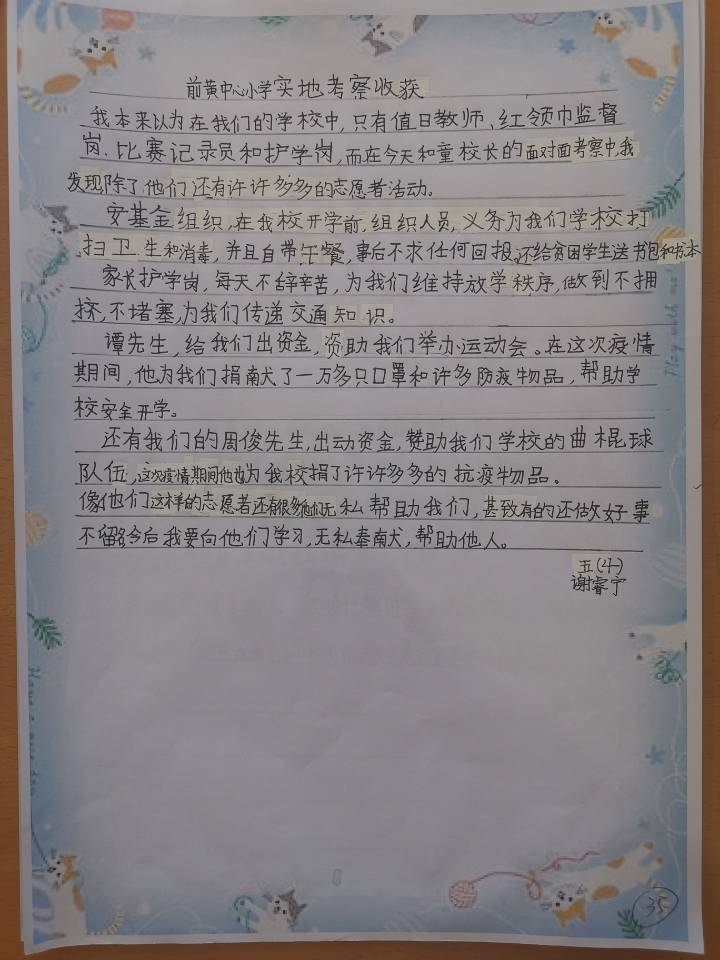 前黄中心小学实地考察收获
我本来以为在我们的学校中,只有值日教师、红领巾监督
岗、比赛记录员和护学岗,而在今天和童校长的面对面考察中,我
发现除了他们还有许许多多的志愿者活动。
安基金组织,在我校开学前,组织人员,义务为我们学校打
扫卫生和消毒,并且自带午餐,事后不求任何回报,还给贫困学生送书包和书本
家长护学岗,每天不辞辛苦,为我们维持放学秩序,做到不拥
挤,不堵塞,为我们传递交通知识。
谭先生,给我们出资金,资助我们举办运动会。在这次疫情
期间,他为我们捐献了一万多只口罩和许多防疫物品,帮助学
校安全开学。
还有我们的周俊先生,出动资金,赞助我们学校的曲棍球
队伍,这次疫情期间他也为我校捐了许许多多的抗疫物品。
像他们这样的志愿者还有很多他们无私帮助我们,甚致有的还做好事
不留名今后我要向他们学习,无私奉献,帮助他人。
五(4)
谢睿宁
Play with me
35